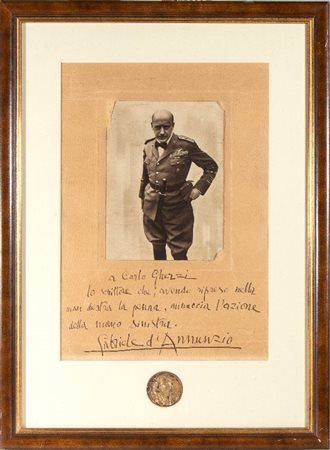 a Carlo Ghezzi
lo scrittore che, avendo ripreso nella
man destra la penna, minaccia l'azione
della mano sinistra.
Gabriele d'Annunzio